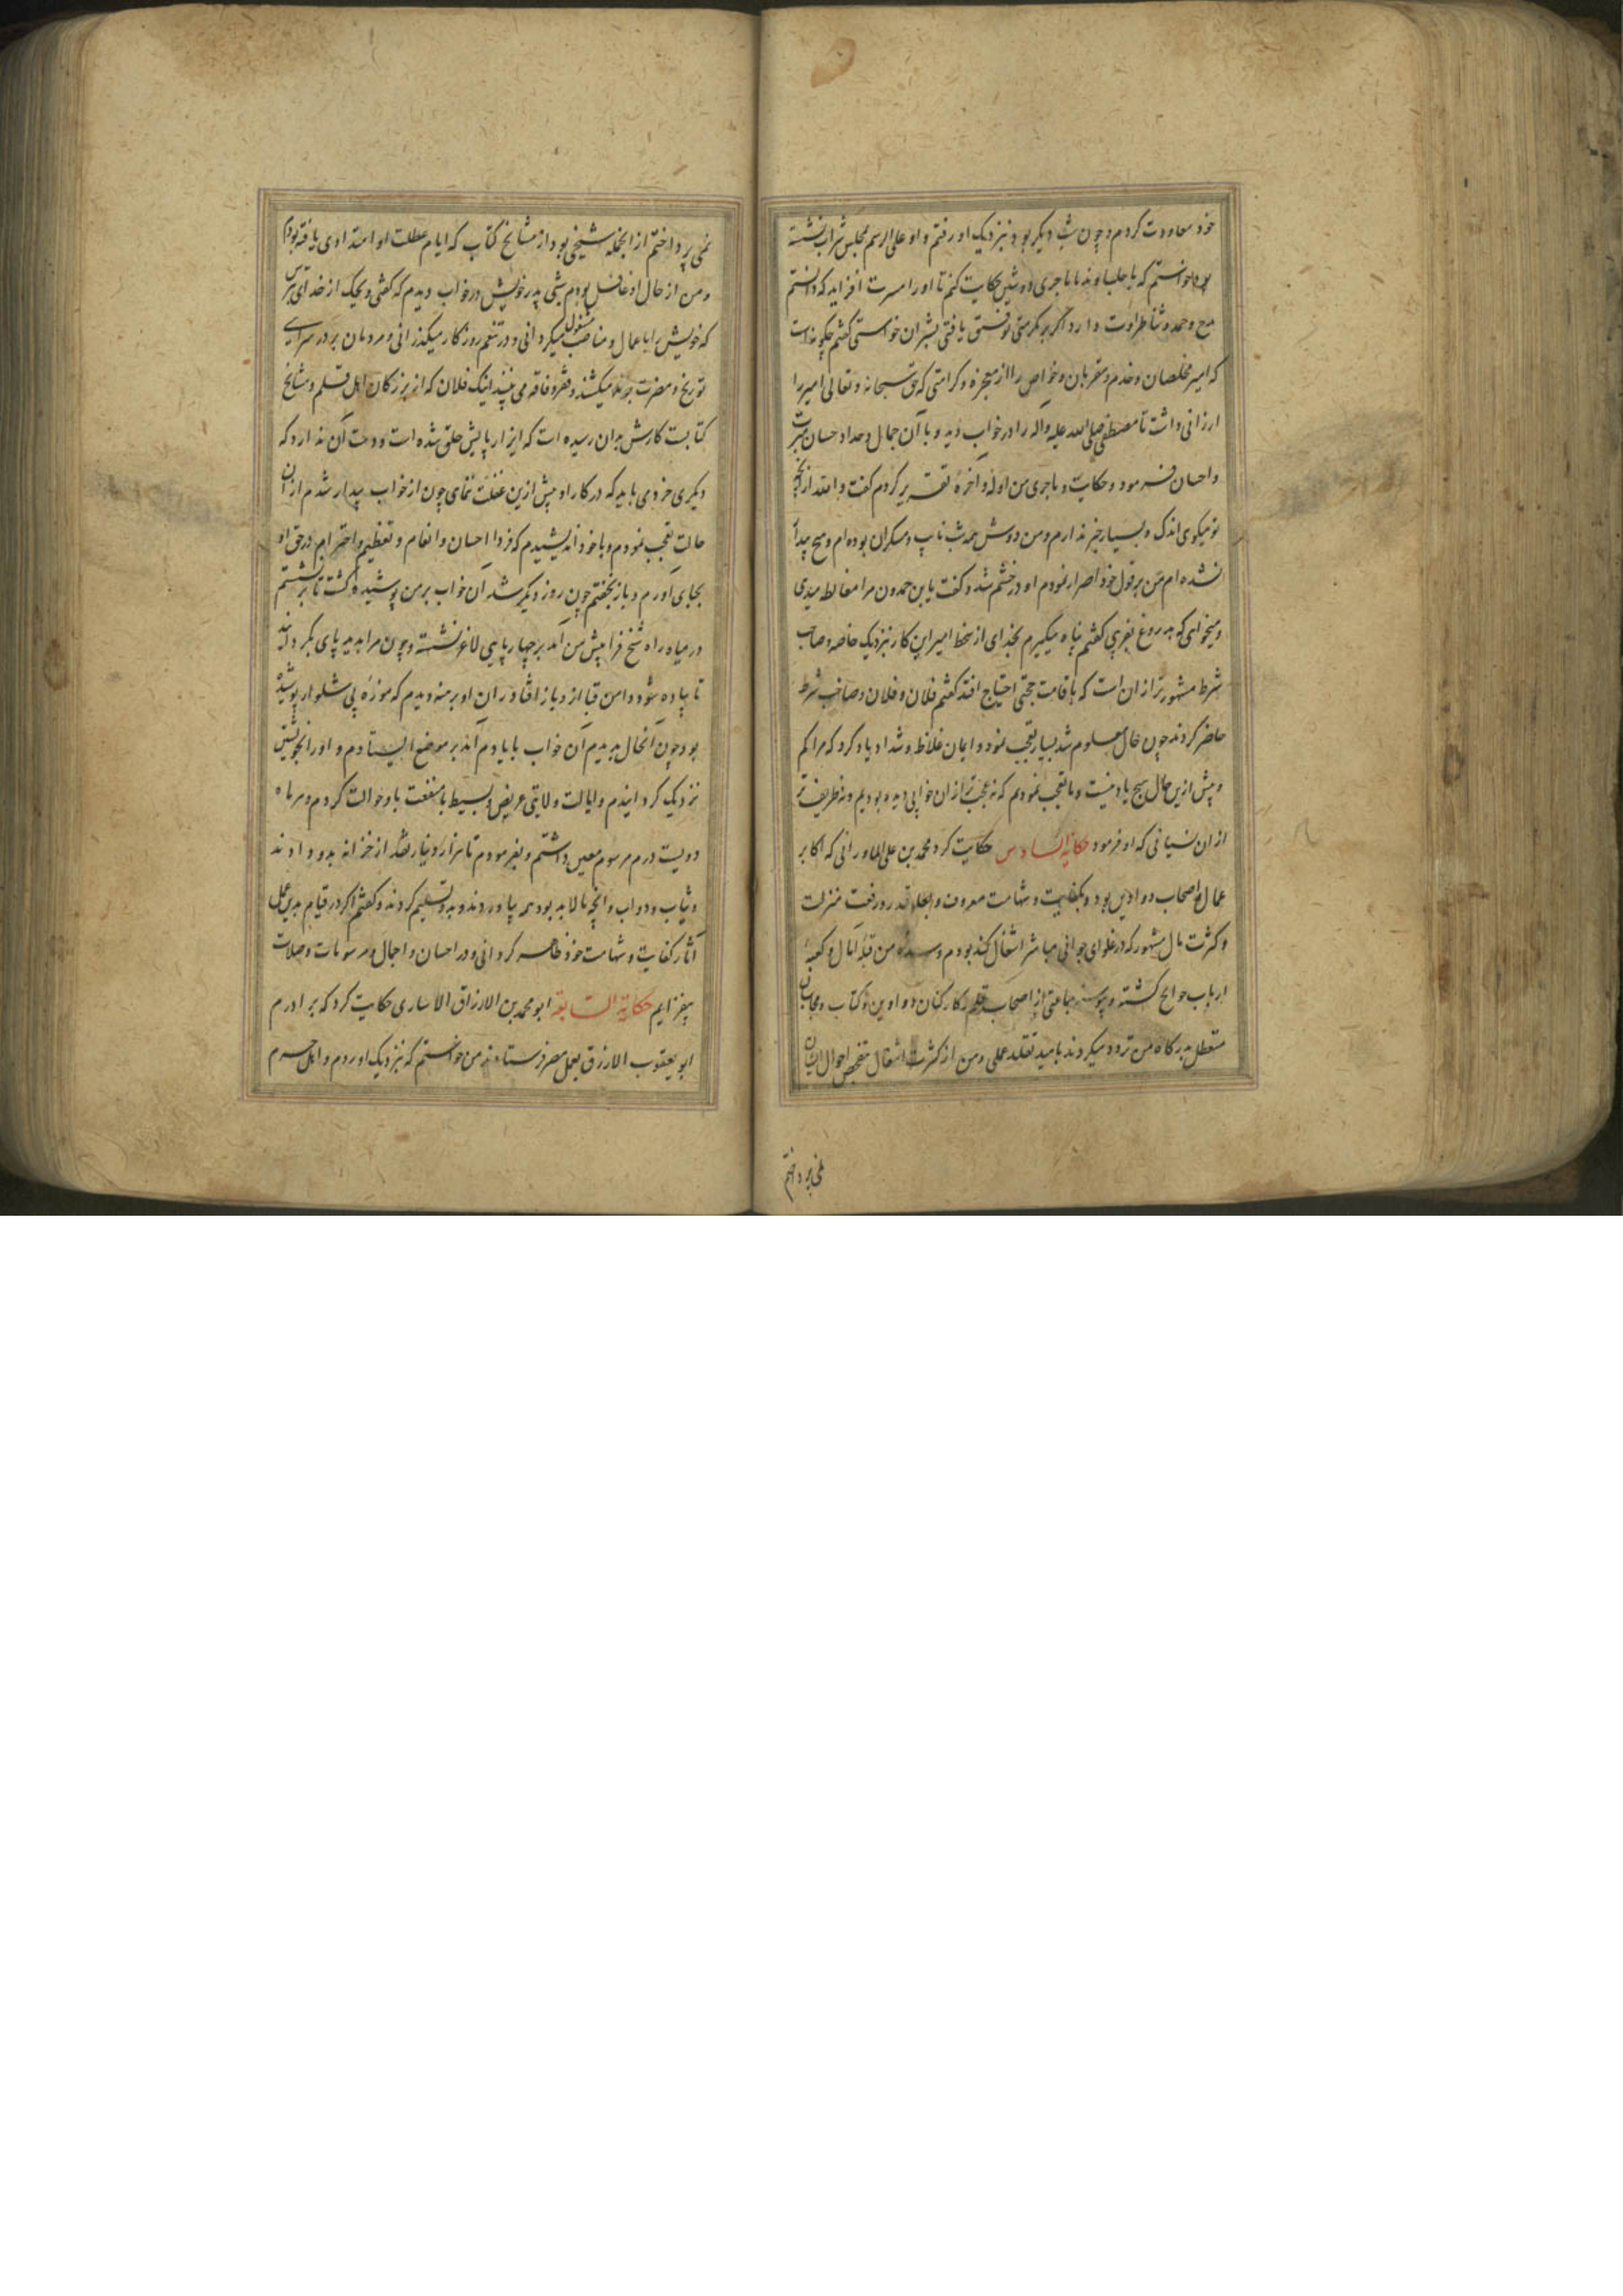 خود معاودت کردم و چون شب دیگر بود بنزدیک او رفتم و او علی الرسم بمجلس شراب نشسته
بود خواستم که با جلساء و ندما ماجری دوشین حکایت کنم تا او را مسرت افزاید که دانستم
مدح و حمد و ثنا طراوت دارد اگر بر مکرمتی توفیق یافتی بشر آن خواستی گفتم چگونه است
که امیر مخلصان و خدم و مقربان و خواص را از معجزه و کرامتی که حق سبحانه و تعالی امیر را
ارزانی داشت تا مصطفی صلی الله علیه واله را در خواب دید و با آن جمال وعداد حسان مبرت
و احسان فرمود و حکایت و ماجری من اوله و آخره تقریر کردم گفت والله ازینچه
تو میگوی اندک و بسیار خبر ندارم و من دوش همه شب نایب و سکران بوده‌ام و هیچ بیدار
نشده‌ام من بر قول خود اصرار نمودم او در خشم شد و گفت یا بن حمدون مرا مغالطه میدی
و میخواهی که بدروغ بفریبی گفتم پناه میگیرم بخدای از سخط امیر این کار نزدیک خاصه و صاحب
شرط مشهورتر از آن است که باقامت حجتی احتیاج افتد گفتم فلان و فلان و صاحب شرط
حاضر کردند چون حال معلوم شد بسیار تعجب نمود و ایمان غلاظ و شداد یاد کرد که مرا کم
و بیش ازین حال هیچ یاد نیست و ما تعجب نمودیم که نه عجبتر از آن خوابی دیده بودیم و نه ظریفتر
از آن نسیانی که او فرمود حکایة السادس حکایت کرد محمد بن علی الماورانی که اکابر
عمال و اصحاب دواوین بود و بکفایت و شهامت معروف و بعلو قدر و رفعت منزلت
و کثرت مال مشهور که در غلوای جوانی مباشر اشغال کند بودم و سده من قبله آمال و کعبه
ارباب حوایج گشته و پیوسته جماعتی از اصحاب قلم و کارکنان دواوین و کتاب و محاسبان
متعطل بدرگاه من تردد میکردند بامید تقلد عملی و من از کثرت اشغال بتفحص احوال ایشان
نمی پرداختم
نمی پرداختم از انجمله شیخی بود از مشایخ کتاب که ایام عطلت او امتدادی یافته بود
و من از حال او غافل بودم شبی پدر خویش در خواب دیدم که گفتی ویحک از خدای بترس
که خویش را باعمال و مناصب مشغول میگردانی و در تنعم روزگار میگذرانی و مردمان بر در سرای
تو رنج و مضرت بر بلا میکشند و فقر و فاقه می بینند اینک فلان که از بزرگان اهل قلم و مشایخ
کتابت کارش بدان رسیده است که ایزار پایش خلق شده است و وجه آن ندارد که
دیگری خرد می باید که در کار او بیش ازین غفلت ننمای چون از خواب بیدار شدم از آن
حالت تعجب نمودم و با خود اندیشیدم که فردا احسان و انعام و تعظیم و احترام در حق او
بجای آورم و باز بخفتم چون روز دیگر شد آن خواب بر من پوشیده گشت تا برنشستم
در میانه راه شیخ فرا پیش من آمد بر چهار پایی لاغر نشسته و چون مرا بدید پای بگردانید
تا پیاده شود دامن قبا از و باز افتاد ران او برهنه دیدم که موزه بی شلوار پوشیده
بود چون آنحال بدیدم آن خواب با یادم آمد بر موضع ایستادم و او را بخویشتن
نزدیک گردانیدم و ایالت ولایتی عریض و بسیط با منفعت باو حوالت کردم و هر ماه
دویست درم مرسوم معین داشتم و بفرمودم تا هزار دینار نقد از خزانه بدو دادند
و ثیاب و دواب و آنچه مالابد بود همه بیاوردند و بدو تسلیم کردند و گفتم اگر در قیام بدین عمل
آثار کفایت و شهامت خود ظاهر گردانی در احسان و اجمال و مرسومات و صلات
بیفزایم حکایة السابعة ابو محمد بن الازرق الانباری حکایت کرد که برادرم
ابو یعقوب الازرق بعمل مصر فرستادند من خواستم که نزدیک او روم و اهل حرم